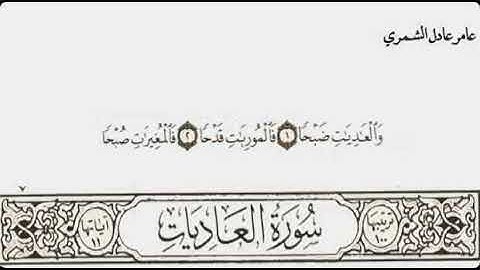 عامر عادل الشمري
وَٱلۡعَٰدِيَٰتِ ضَبۡحٗا ١ فَٱلۡمُورِيَٰتِ قَدۡحٗا ٢ فَٱلۡمُغِيرَٰتِ صُبۡحٗا
٧
ترتيبها ١٠٠ سُورَةُ العَادِيَاتِ آياتها ١١